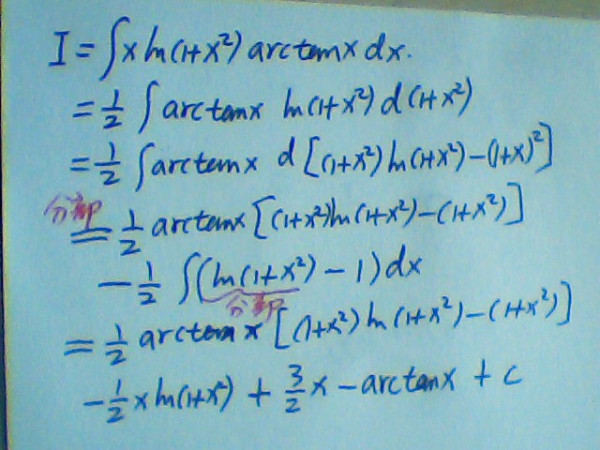 I = ∫ x ln(1+x²) arctanx dx.
= 1/2 ∫ arctanx ln(1+x²) d(1+x²)
= 1/2 ∫ arctanx d[(1+x²)ln(1+x²)-(1+x)²]
分部
= 1/2 arctanx [(1+x²)ln(1+x²)-(1+x²)]
- 1/2 ∫(ln(1+x²)-1)dx
分部
= 1/2 arctanx [(1+x²)ln(1+x²)-(1+x²)]
- 1/2 x ln(1+x²) + 3/2 x - arctanx + c